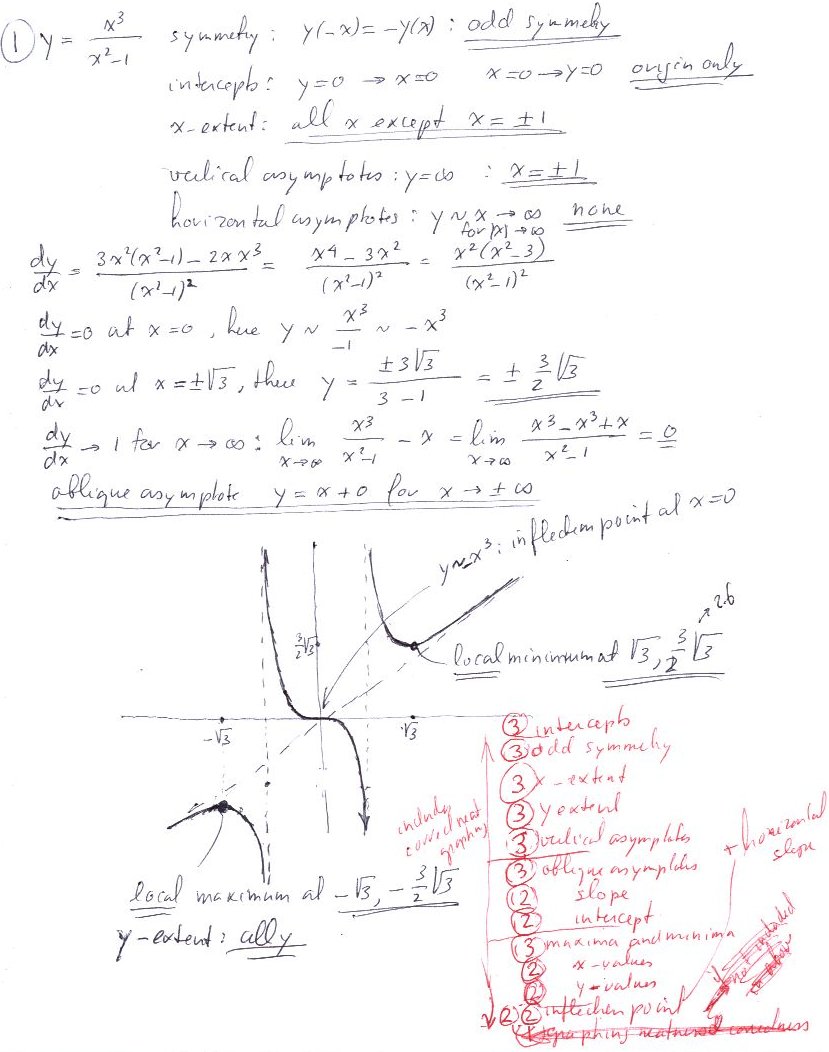 ① y = x³/(x²-1) symmetry: y(-x) = -y(x) : odd symmetry
intercepts: y=0 → x=0 x=0 → y=0 origin only
x-extent: all x except x = ±1
vertical asymptotes: y=∞ : x = ±1
horizontal asymptotes: y ~ x → ∞ for |x| → ∞ none
dy/dx = (3x²(x²-1) - 2x x³)/(x²-1)² = (x⁴ - 3x²)/(x²-1)² = x²(x²-3)/(x²-1)²
dy/dx = 0 at x=0, here y ~ x³/-1 ~ -x³
dy/dx = 0 at x = ±√3, there y = ±3√3/(3-1) = ± 3/2 √3
dy/dx → 1 for x → ∞ : lim x→∞ x³/(x²-1) - x = lim x→∞ (x³ - x³ + x)/(x²-1) = 0
oblique asymptote y = x + 0 for x → ± ∞
y ~ -x³ : inflection point at x=0
3/2 √3
2.6
local minimum at √3, 3/2 √3
-√3
√3
local maximum at -√3, -3/2 √3
y-extent: all y
③ intercepts
③ odd symmetry
③ x-extent
③ y extent
③ vertical asymptotes
③ oblique asymptotes
② slope
② intercept
③ maxima and minima
② x-values
② y-values
② ② inflection point
graphing neatness correctness
include correct neat graphing
+ horizontal slope
not included